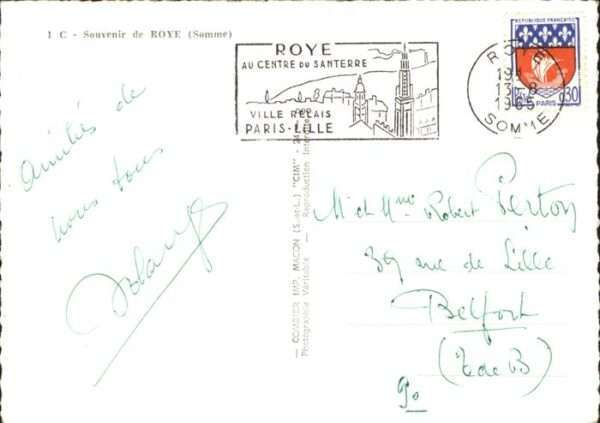 1 C - Souvenir de ROYE (Somme)
ROYE
AU CENTRE DU SANTERRE
VILLE RELAIS
PARIS-LILLE
ROYE
13-8
1965
SOMME
REPUBLIQUE FRANÇAISE
PARIS
0,30
Amitiés de
nous tous
— COMBIER IMP. MACON (S.-et-L.) "CIM" —
Photographie Véritable - Reproduction Interdite
M et Mme Robert Perton
39 rue de Lille
Belfort
(T de B)
90